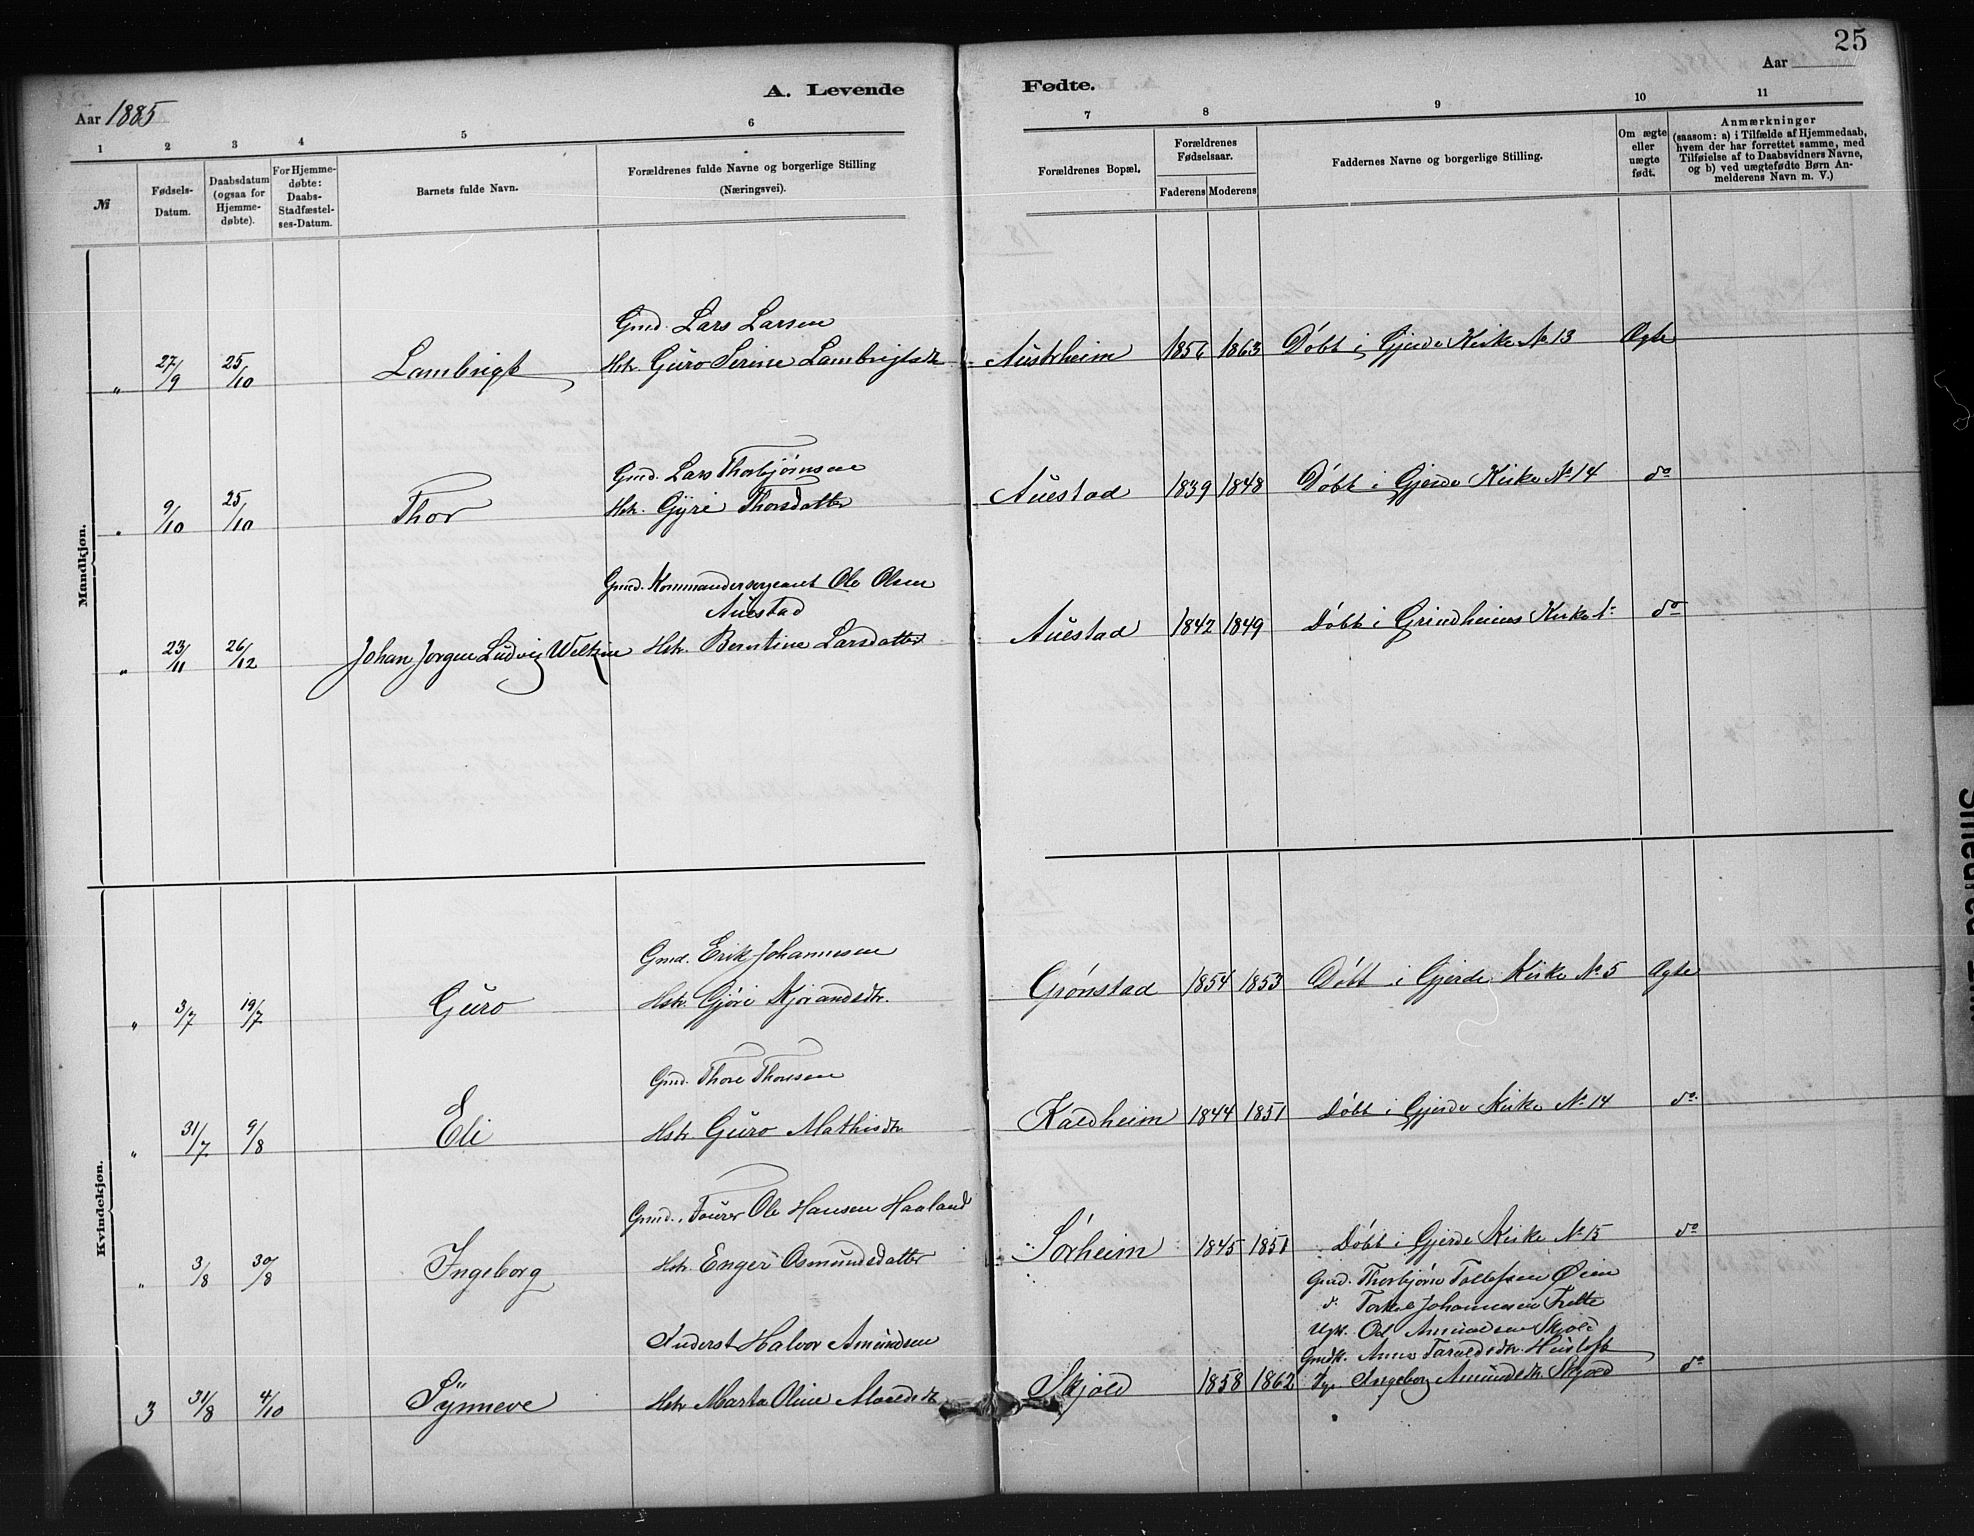 25
Aar 1885
A. Levende
Fødte.
Aar
1 2 3 4 5 6 7 8 9 10 11
№
Fødsels-Datum.
Daabsdatum (ogsaa for Hjemme-døbte).
For Hjemme-døbte: Daabs-Stadfæstel-ses-Datum.
Barnets fulde Navn.
Forældrenes fulde Navne og borgerlige Stilling (Næringsvei).
Forældrenes Bopæl.
Forældrenes Fødselsaar.
Faderens Moderens
Faddernes Navne og borgerlige Stilling.
Om ægte eller uægte født.
Anmærkninger
(saasom: a) i Tilfælde af Hjemmedaab,
hvem der har forrettet samme, med
Tilføielse af to Daabsvidners Navne,
og b) ved uægtefødte Børn An-
melderens Navn m. V.)
Mandkjøn.
Gmd. Lars Larsen
" 27/9 25/10 Lambrigt Hstr. Guro Serine Lambrigtsdtr Austrheim 1856 1863 Døbt i Gjerde Kirke No 13 Ægte
Gmd. Lars Thorbjørnsen
" 9/10 25/10 Thor Hstr. Gyri Thorsdatter Auestad 1839 1848 Døbt i Gjerde Kirke No 14 do
Gmd. Kommandersergeant Ole Olsen
Auestad
" 23/11 26/12 Johan Jørgen Ludvig Hstr. Berntine Larsdatter Auestad 1842 1849 Døbt i Grindheims Kirke do
Kvindekjøn.
Gmd. Erik Johannesen
" 3/7 19/7 Guro Hstr. Gjøri Kjørandsdtr. Grønstad 1854 1853 Døbt i Gjerde Kirke No 5 Ægte
Gmd. Thore Thoresen
" 31/7 9/8 Eli Hstr Guro Mathisdtr Kaldheim 1844 1851 Døbt i Gjerde Kirke No 14 do
Gmd. Fourer Ole Hansen Haaland
" 3/8 30/8 Ingeborg Hstr. Enger Osmundsdatter Sørheim 1845 1851 Døbt i Gjerde Kirke No 15 do
Gmd. Thorbjørn Tollefsen Øien
d. Torkel Johannesen Frette
Inderst Halvor Amundsen Ugk. Amundsen Skjold
Gmdk. Anna Taraldsdtr.
3 31/8 4/10 Synneve Hstr Marta Oline Skjold 1858 1862 Ingeborg Amundsdtr Skjold do